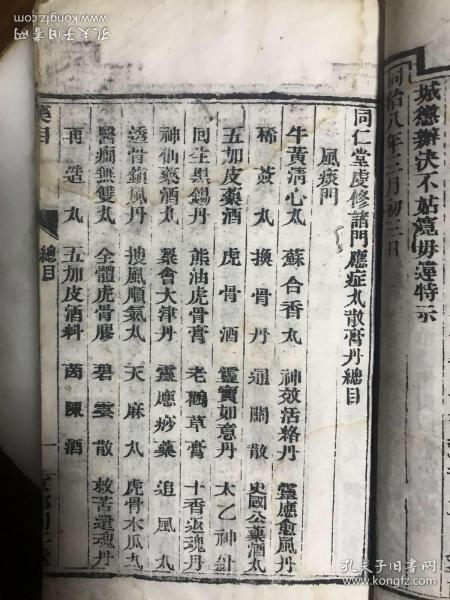 城懲辦決不姑寬毋違特示
同治八年三月初三日
同仁堂虔修諸門應症丸散膏丹總目
風痰門
牛黃清心丸 蘇合香丸 神效活絡丹 靈應愈風丹
豨薟丸 換骨丹 通關散 史國公藥酒
五加皮藥酒 虎骨酒 靈寶如意丹 太乙神針
回生黑錫丹 熊油虎骨膏 老鸛草膏 十香返魂丹
神仙藥酒丸 聚會大津丹 靈應痧藥 追風丸
透骨鎮風丹 搜風順氣丸 天麻丸 虎骨木瓜丸
醫癇無雙丸 全體虎骨膠 碧雲散 救苦還魂丹
再造丸 五加皮酒料 茵陳酒
藥目 總目 一
孔夫子旧書网
www.kongfz.com
孔夫子旧書网
www.kongfz.com